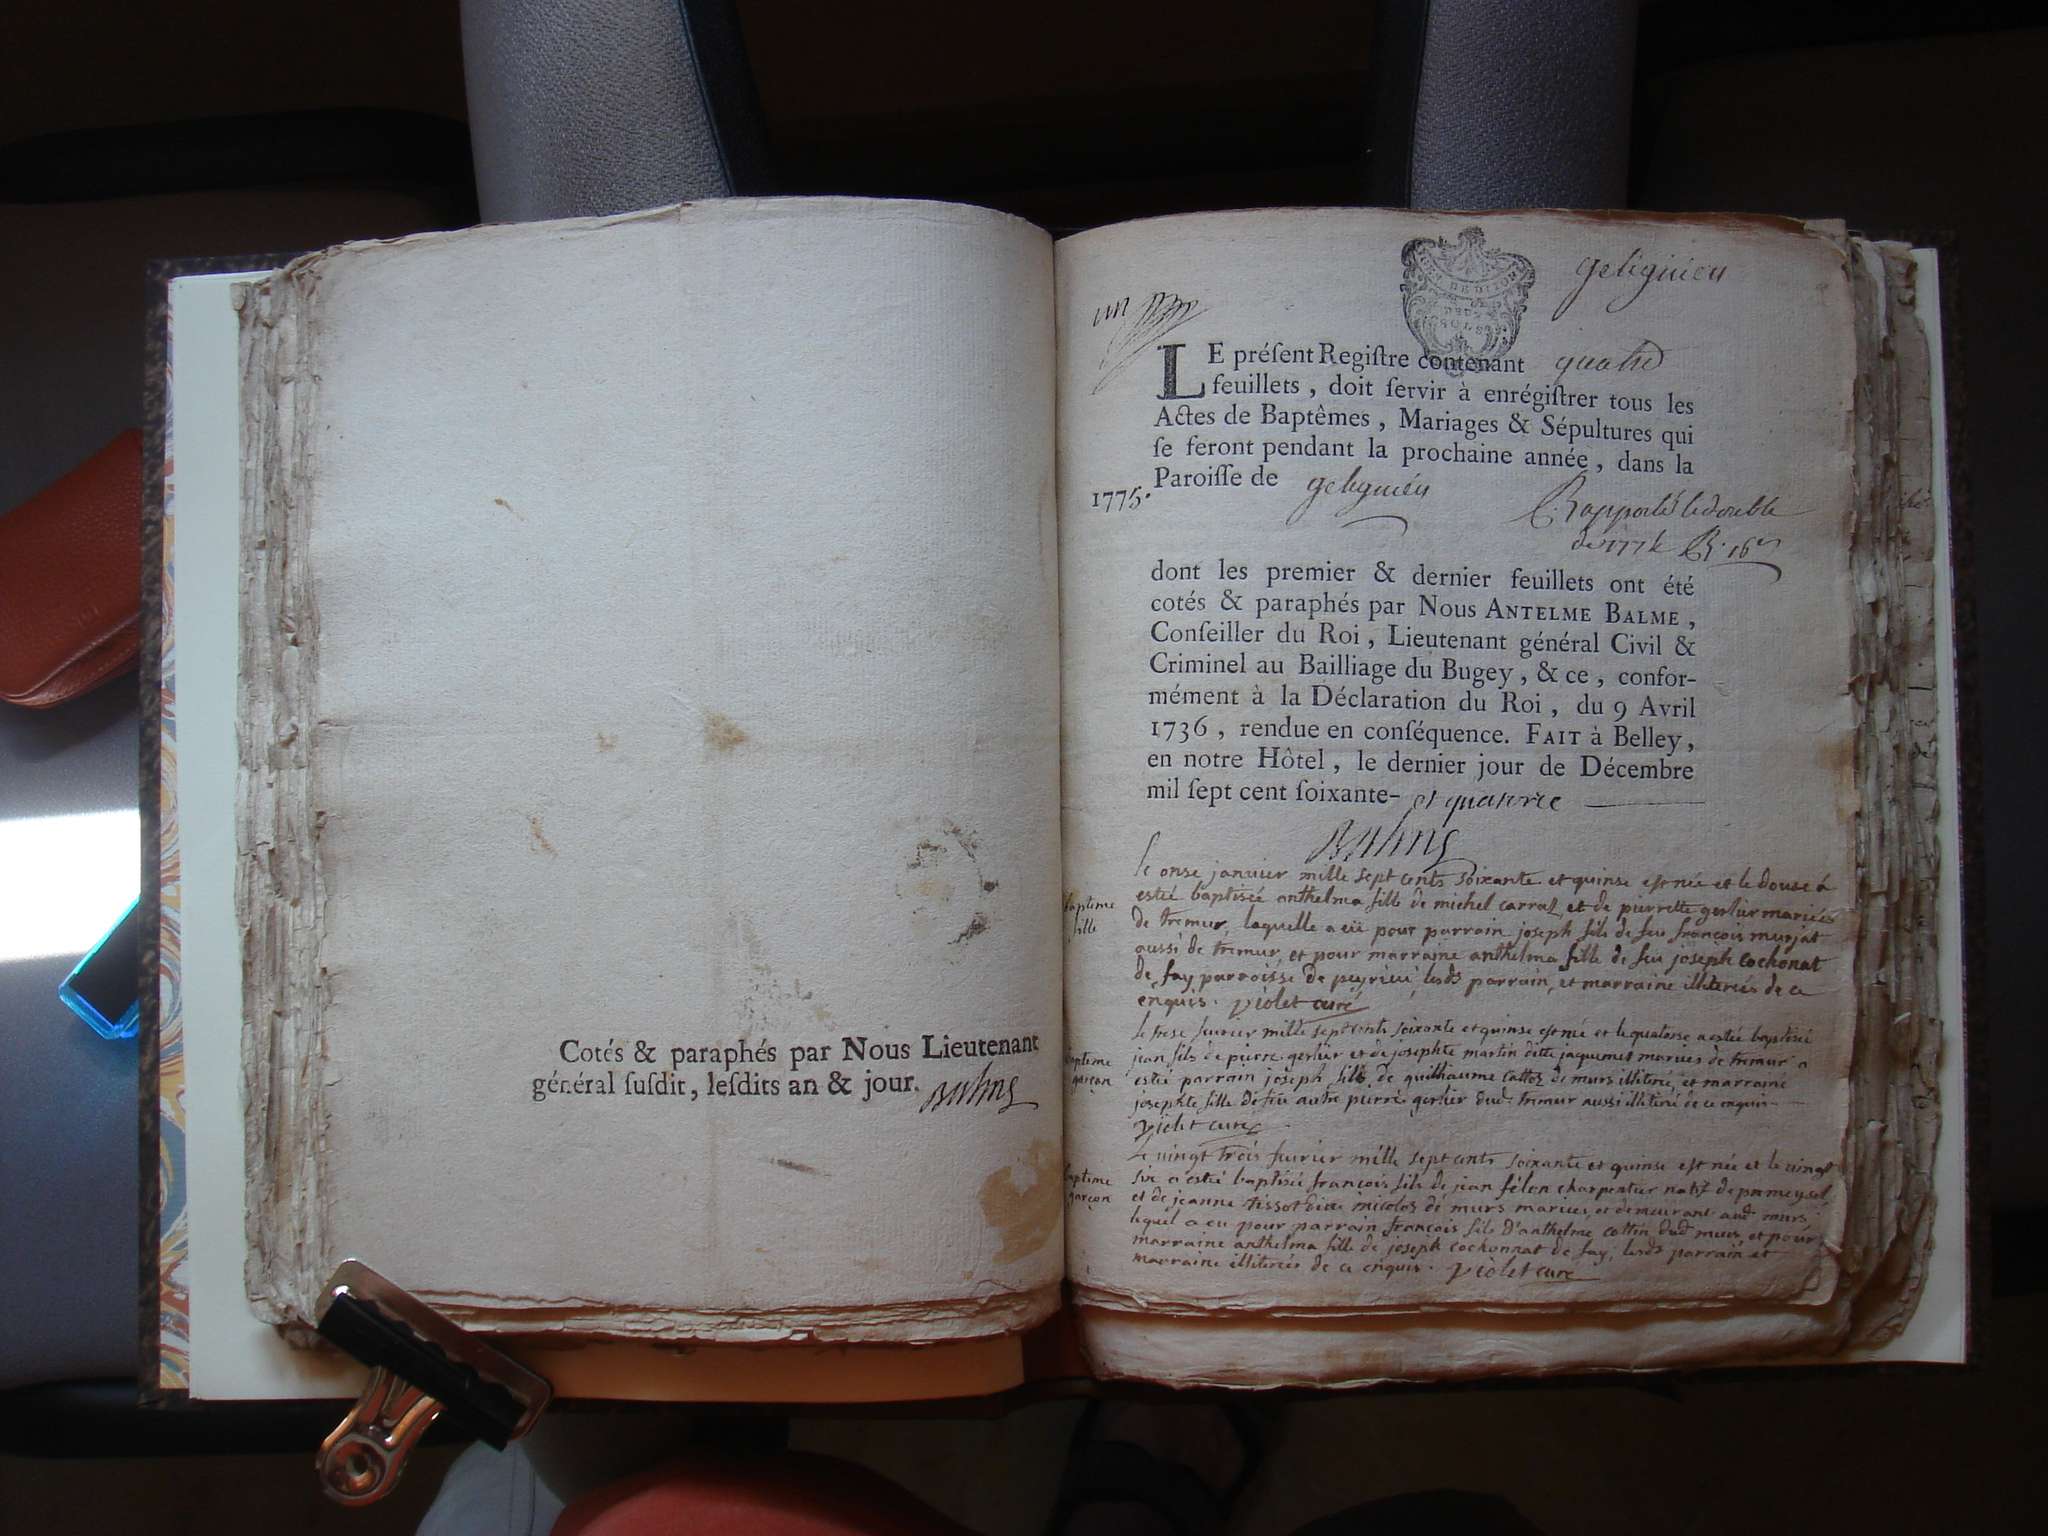 Cotés & paraphés par Nous Lieutenant
général susdit, lesdits an & jour.
un
gelignieu
LE préſent Regiſtre contenant quatre
feuillets, doit ſervir à enrégiſtrer tous les
Actes de Baptêmes, Mariages & Sépultures qui
ſe feront pendant la prochaine année, dans la
Paroiſſe de gelignieu
1775.
Rapporté le double
de 1774
dont les premier & dernier feuillets ont été
cotés & paraphés par Nous ANTELME BALME,
Conſeiller du Roi, Lieutenant général Civil &
Criminel au Bailliage du Bugey, & ce, confor-
mément à la Déclaration du Roi, du 9 Avril
1736, rendue en conſéquence. FAIT à Belley,
en notre Hôtel, le dernier jour de Décembre
mil ſept cent ſoixante- et quatorze
le onse janvier mille sept cents soixante et quinse est née et le douse a
bapteme
fille
estée baptisée anthelma fille de michel carraz, et de pierrette gerlier mariés
de tremur, laquelle a eü pour parrain joseph fils de feu françois murjat
aussi de tremur, et pour marraine anthelma fille de feu joseph cochonat
de fay parroisse de peyrieu, lesds parrain, et marraine illiterés de ce
enquis. violet curé
le trese fevrier mille sept cents soixante et quinse est née et le quatorse a estée baptisé
bapteme
garçon
jean fils de pierre gerlier et de josephte martin ditte jaquemet mariés de tremur a
esté parrain joseph fils de guilhaume cattos de murs illiteré, et marraine
josephte fille de feu autre pierre gerlier dud. tremur aussi illiteré de ce enquis
violet curé
le vingt trois fevrier mille sept cents soixante et quinse est née et le vingt
bapteme
garçon
six a esté baptisé françois fils de jean félon charpentier natif de
et de jeanne tissot dite micolos de murs mariés, et demeurant aud. murs
lequel a eu pour parrain françois fils d'anthelme cottin dud. murs, et pour
marraine anthelma fille de joseph cochonnat de fay, lesds parrain et
marraine illiterés de ce enquis. violet curé